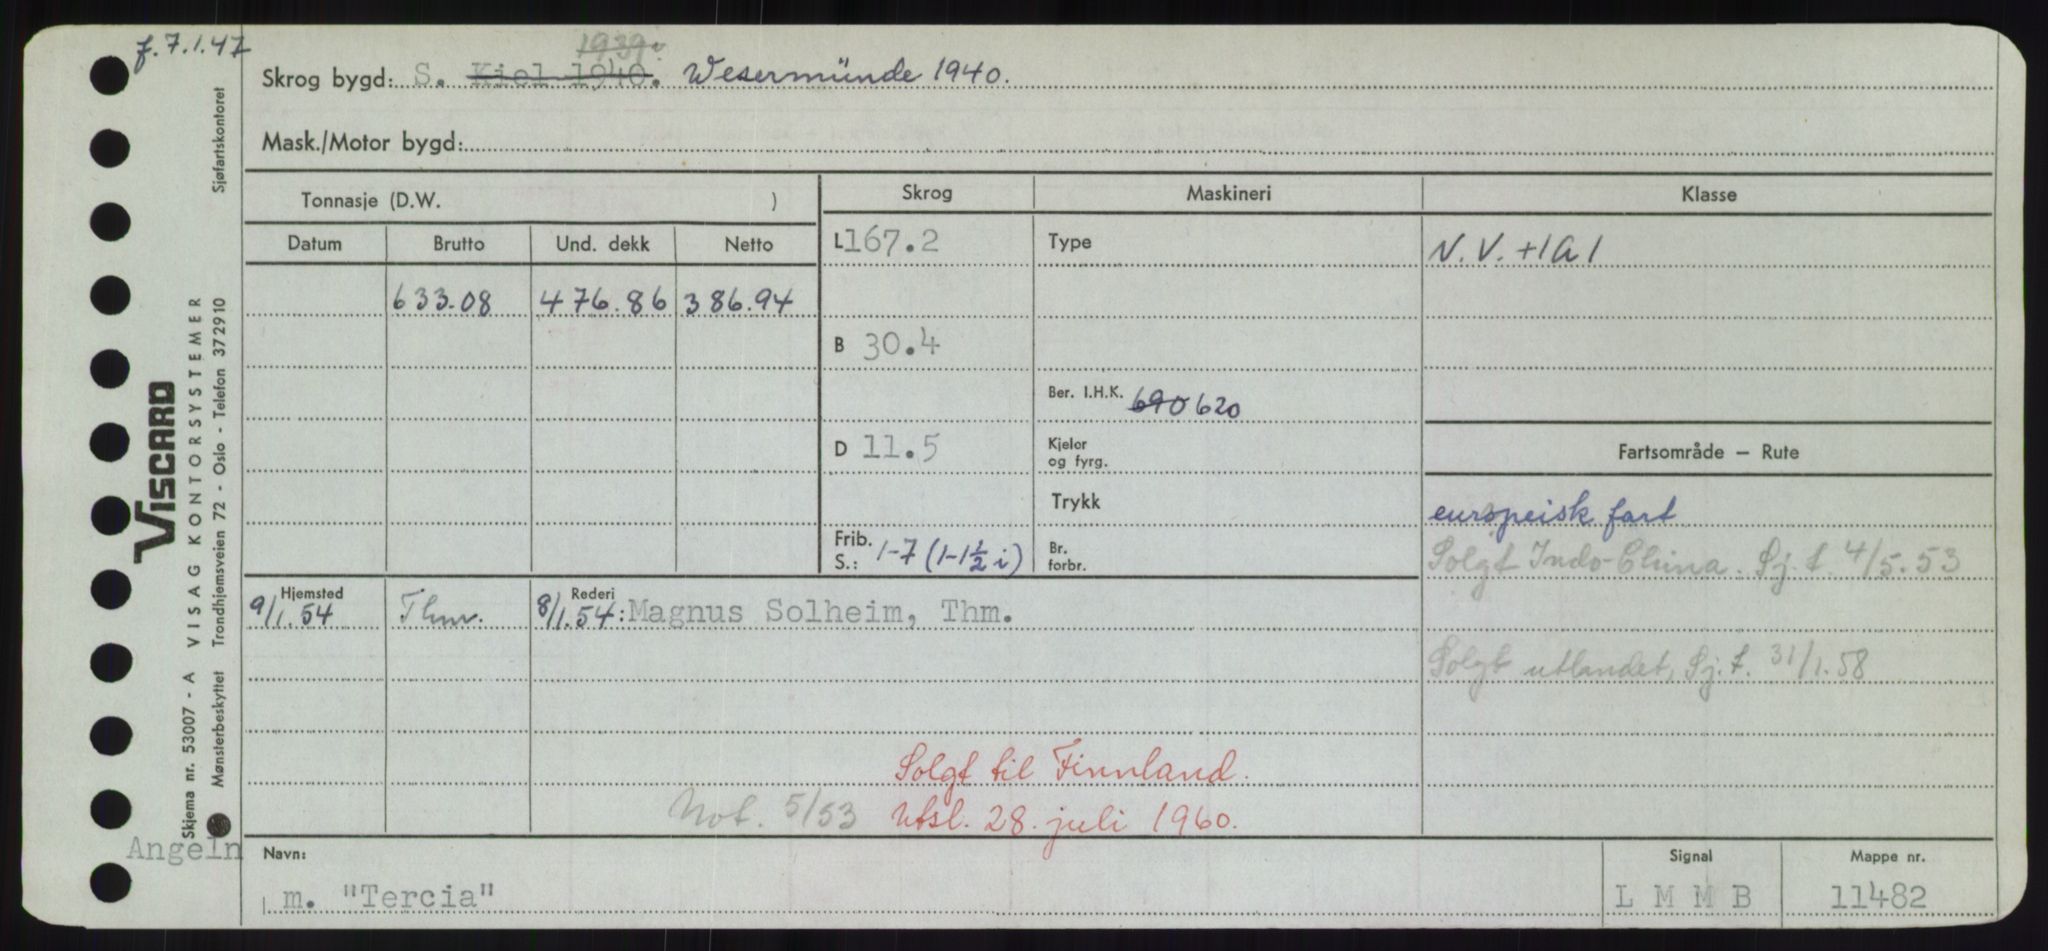 f. 7.1.47
1939.
Skrog bygd: S. Kiel 1940. Wesermünde 1940.
Mask./Motor bygd:
Tonnasje (D.W. )
Skrog
Maskineri
Klasse
Datum Brutto Und. dekk Netto
L 167.2
Type
N.V. +1A1
633.08 476.86 386.94
B 30.4
Ber. I.H.K. 690 620
D 11.5
Kjeler
og fyrg.
Fartsområde – Rute
Trykk
europeisk fart
Frib.
S.: 1-7 (1-1½ i)
Br.
forbr.
Solgt Indo-China. Sj.f. 4/5.53
Hjemsted
Rederi
9/1.54 Thm. 8/1.54: Magnus Solheim, Thm.
Solgt utlandet, Sj.f. 31/1.58
Solgt til Finnland.
Not. 5/53 Utsl. 28. juli 1960.
Angeln
Navn:
m. "Tercia"
Signal
L M M B
Mappe nr.
11482
VISCARD
VISAG KONTORSYSTEMER
Skjema nr. 53007 - A
Mønsterbeskyttet Trondhjemsveien 72 - Oslo - Telefon 372910
Sjøfartskontoret